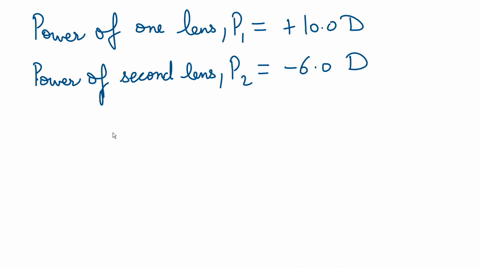 Power of one lens, P₁ = +10.0 D
Power of second lens, P₂ = -6.0 D